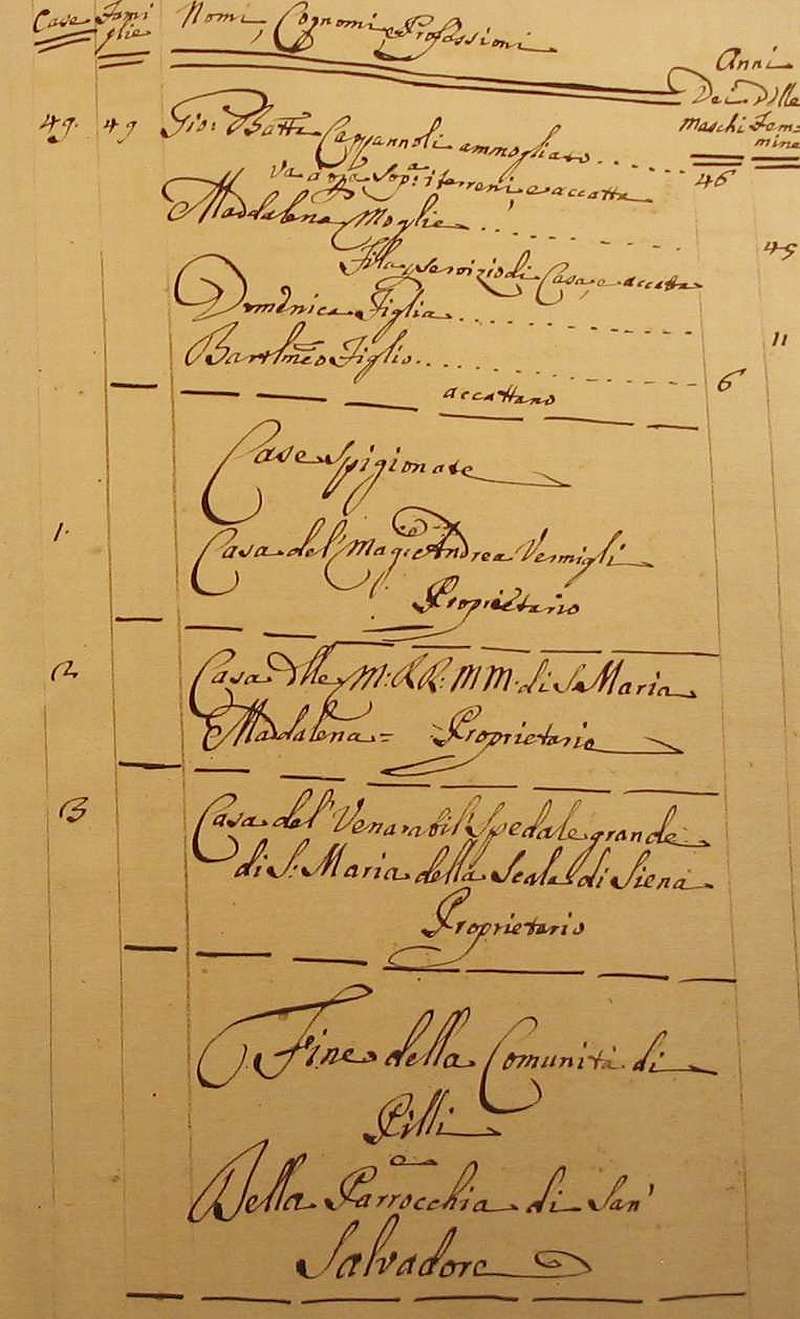 Case Fami Nomi, Cognomi, e Professioni
glie
Anni
Dei Delle
Maschi Fem=
mine
49. 49 Gio: Batta Cappannoli ammogliato...... 46
va a op.a Sop.a i terreni, e accatta
Maddalena Moglie........ 45
Fila, servizio di Casa, e accatta
Domenica Figlia........... 11
Bartlmeo Figlio........... 6
accattano
Case Spigionate
1. Casa del' Mag.co Andrea Vermigli
Proprietario
2 Casa dlle M: RR: MM: di S. Maria
Maddalena = Proprietario
3 Casa del' Venarabil' Spedale grande
di S: Maria della Scala di Siena
Proprietario
Fine della Comunità di
Pilli
e
Della Parrocchia di San'
Salvadore